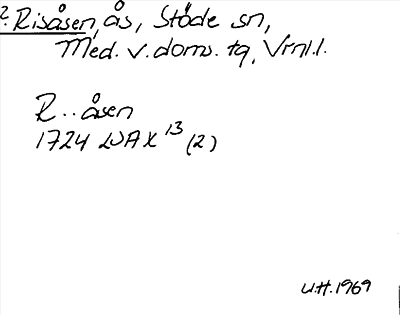 ?. Risåsen, ås, Stöde sn,
Med. v. doms. tg, Vrnl.l.
R..åsen
1724 LVA X 13 (2)
U.H. 1969